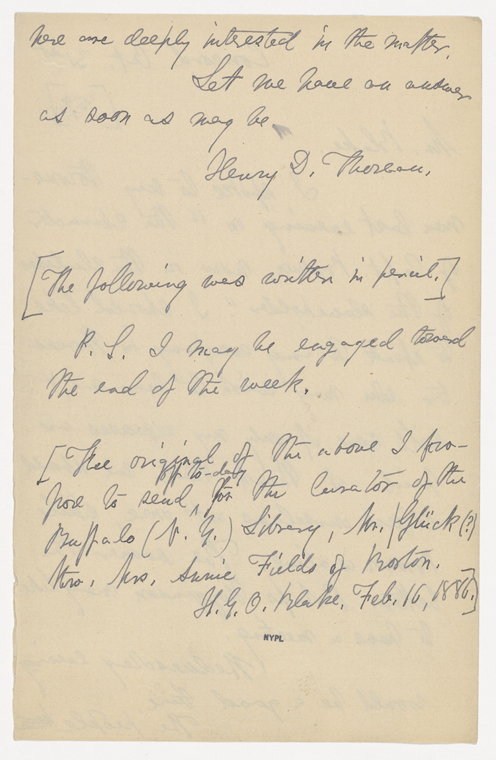 here are deeply interested in the matter.
Let me have an answer
as soon as may be
Henry D. Thoreau.
[The following was written in pencil.]
P. S. I may be engaged toward
the end of the week.
[The original of the above I pro-
pose to send, to-day for the Curator of the
Buffalo (N. Y.) Library, Mr. Glück (?)
thro. Mrs. Annie Fields of Boston.
H. G. O. Blake. Feb. 16, 1886.]
NYPL